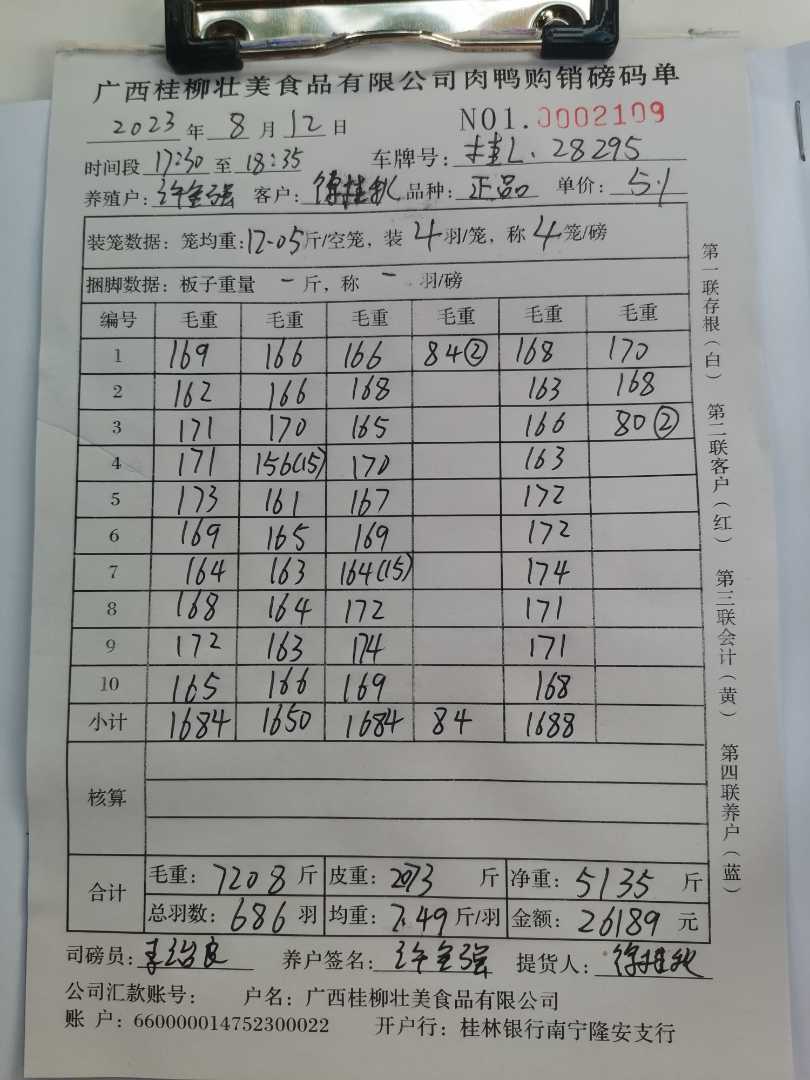 广西桂柳壮美食品有限公司肉鸭购销磅码单
2023年8月12日 NO1.0002109
时间段 17:30 至 18:35 车牌号: 桂L·28295
养殖户: 许全强 客户: 徐桂秋 品种: 正品 单价: 5.1
装笼数据: 笼均重: 12.05斤/空笼, 装4羽/笼, 称4笼/磅
捆脚数据: 板子重量 - 斤, 称 - 羽/磅
编号 毛重 毛重 毛重 毛重 毛重 毛重
1 169 166 166 84② 168 170
2 162 166 168 163 168
3 171 170 165 166 80②
4 171 156(15) 170 163
5 173 161 167 172
6 169 165 169 172
7 164 163 164(15) 174
8 168 164 172 171
9 172 163 174 171
10 165 166 169 168
小计 1684 1650 1684 84 1688
核算
合计 毛重: 7208斤 皮重: 2073斤 净重: 5135斤
总羽数: 686羽 均重: 7.49斤/羽 金额: 26189元
司磅员: 养户签名: 许全强 提货人: 徐桂秋
公司汇款账号: 户名: 广西桂柳壮美食品有限公司
账 户: 660000014752300022 开户行: 桂林银行南宁隆安支行
第一联存根(白) 第二联客户(红) 第三联会计(黄) 第四联养户(蓝)